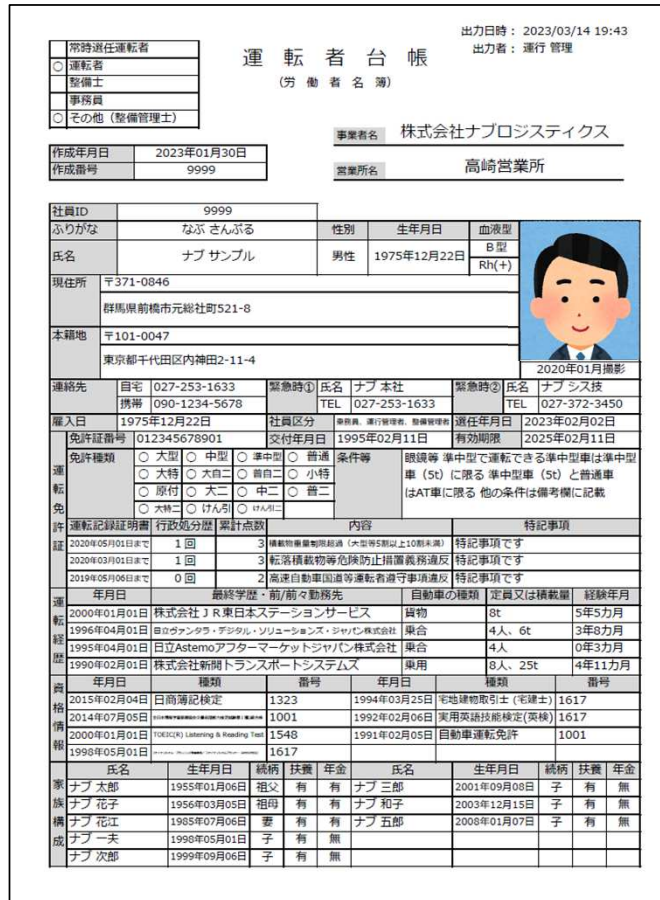 出力日時： 2023/03/14 19:43
出力者： 運行 管理
常時選任運転者
○ 運転者
整備士
事務員
○ その他（整備管理士）
運 転 者 台 帳
（労 働 者 名 簿）
事業者名 株式会社ナブロジスティクス
営業所名 高崎営業所
作成年月日 2023年01月30日
作成番号 9999
社員ID 9999
ふりがな なぶ さんぷる 性別 生年月日 血液型
氏名 ナブ サンプル 男性 1975年12月22日 B型 Rh(+)
現住所 〒371-0846
群馬県前橋市元総社町521-8
本籍地 〒101-0047
東京都千代田区内神田2-11-4
2020年01月撮影
連絡先 自宅 027-253-1633 緊急時① 氏名 ナブ 本社 緊急時② 氏名 ナブ シス技
携帯 090-1234-5678 TEL 027-253-1633 TEL 027-372-3450
雇入日 1975年12月22日 社員区分 乗務員、運行管理者、整備管理者 選任年月日 2023年02月02日
運転免許証
免許証番号 012345678901 交付年月日 1995年02月11日 有効期限 2025年02月11日
免許種類 ○ 大型 ○ 中型 ○ 準中型 ○ 普通 条件等 眼鏡等 準中型で運転できる準中型車は準中型
○ 大特 ○ 大自二 ○ 普自二 ○ 小特 車（5t）に限る 準中型車（5t）と普通車
○ 原付 ○ 大二 ○ 中二 ○ 普二 はAT車に限る 他の条件は備考欄に記載
○ 大特二 ○ けん引 ○ けん引二
運転記録証明書 行政処分歴 累計点数 内容 特記事項
2020年05月01日まで 1回 3 積載物重量制限超過（大型等5割以上10割未満） 特記事項です
2020年03月01日まで 1回 3 転落積載物等危険防止措置義務違反 特記事項です
2019年05月06日まで 0回 2 高速自動車国道等運転者遵守事項違反 特記事項です
運転経歴
年月日 最終学歴・前/前々勤務先 自動車の種類 定員又は積載量 経験年月
2000年01月01日 株式会社ＪＲ東日本ステーションサービス 貨物 8t 5年5カ月
1996年04月01日 日立ヴァンタラ・デジタル・ソリューションズ・ジャパン株式会社 乗合 4人、6t 3年8カ月
1995年04月01日 日立Astemoアフターマーケットジャパン株式会社 乗合 4人 0年3カ月
1990年02月01日 株式会社新開トランスポートシステムズ 乗用 8人、25t 4年11カ月
資格情報
年月日 種類 番号 年月日 種類 番号
2015年02月04日 日商簿記検定 1323 1994年03月25日 宅地建物取引士 (宅建士) 1617
2014年07月05日 1001 1992年02月06日 実用英語技能検定(英検) 1617
2000年01月01日 TOEIC(R) Listening & Reading Test 1548 1991年02月05日 自動車運転免許 1001
1998年05月01日 1617
家族構成
氏名 生年月日 続柄 扶養 年金 氏名 生年月日 続柄 扶養 年金
ナブ 太郎 1955年01月06日 祖父 有 有 ナブ 三郎 2001年09月08日 子 有 無
ナブ 花子 1956年03月05日 祖母 有 有 ナブ 和子 2003年12月15日 子 有 無
ナブ 花江 1985年07月06日 妻 有 有 ナブ 五郎 2008年01月07日 子 有 無
ナブ 一夫 1998年05月01日 子 有 無
ナブ 次郎 1999年09月06日 子 有 無